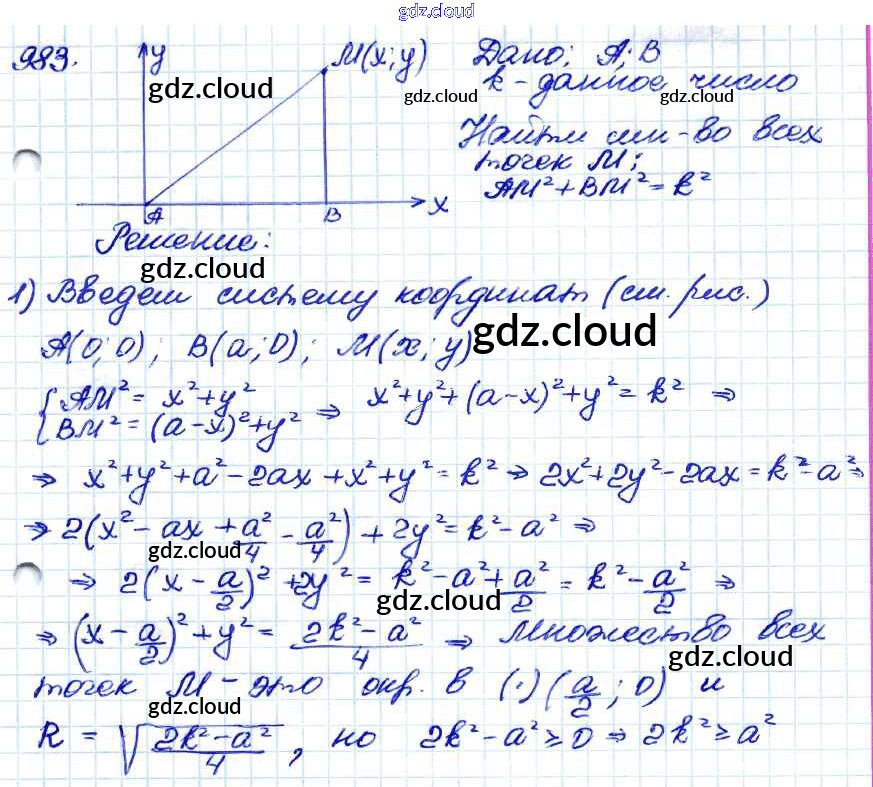 gdz.cloud
983. y M(x; y) Дано: A; B
gdz.cloud k - данное число
gdz.cloud gdz.cloud
Найти мн-во всех
точек M:
AM² + BM² = k²
A B x
Решение:
gdz.cloud
1) Введем систему координат (см. рис.)
A(0; 0); B(a; 0); M(x; y) gdz.cloud
{ AM² = x² + y²
BM² = (a - x)² + y² ⇒ x² + y² + (a - x)² + y² = k² ⇒
⇒ x² + y² + a² - 2ax + x² + y² = k² ⇒ 2x² + 2y² - 2ax = k² - a² ⇒
⇒ 2(x² - ax + a²/4 - a²/4) + 2y² = k² - a² ⇒
gdz.cloud gdz.cloud
⇒ 2(x - a/2)² + 2y² = k² - a² + a²/2 = k² - a²/2 ⇒
gdz.cloud
⇒ (x - a/2)² + y² = (2k² - a²)/4 ⇒ Множество всех
gdz.cloud
точек M - это окр. в (·) (a/2; 0) и
gdz.cloud
R = √((2k² - a²)/4), но 2k² - a² ≥ 0 ⇒ 2k² ≥ a²